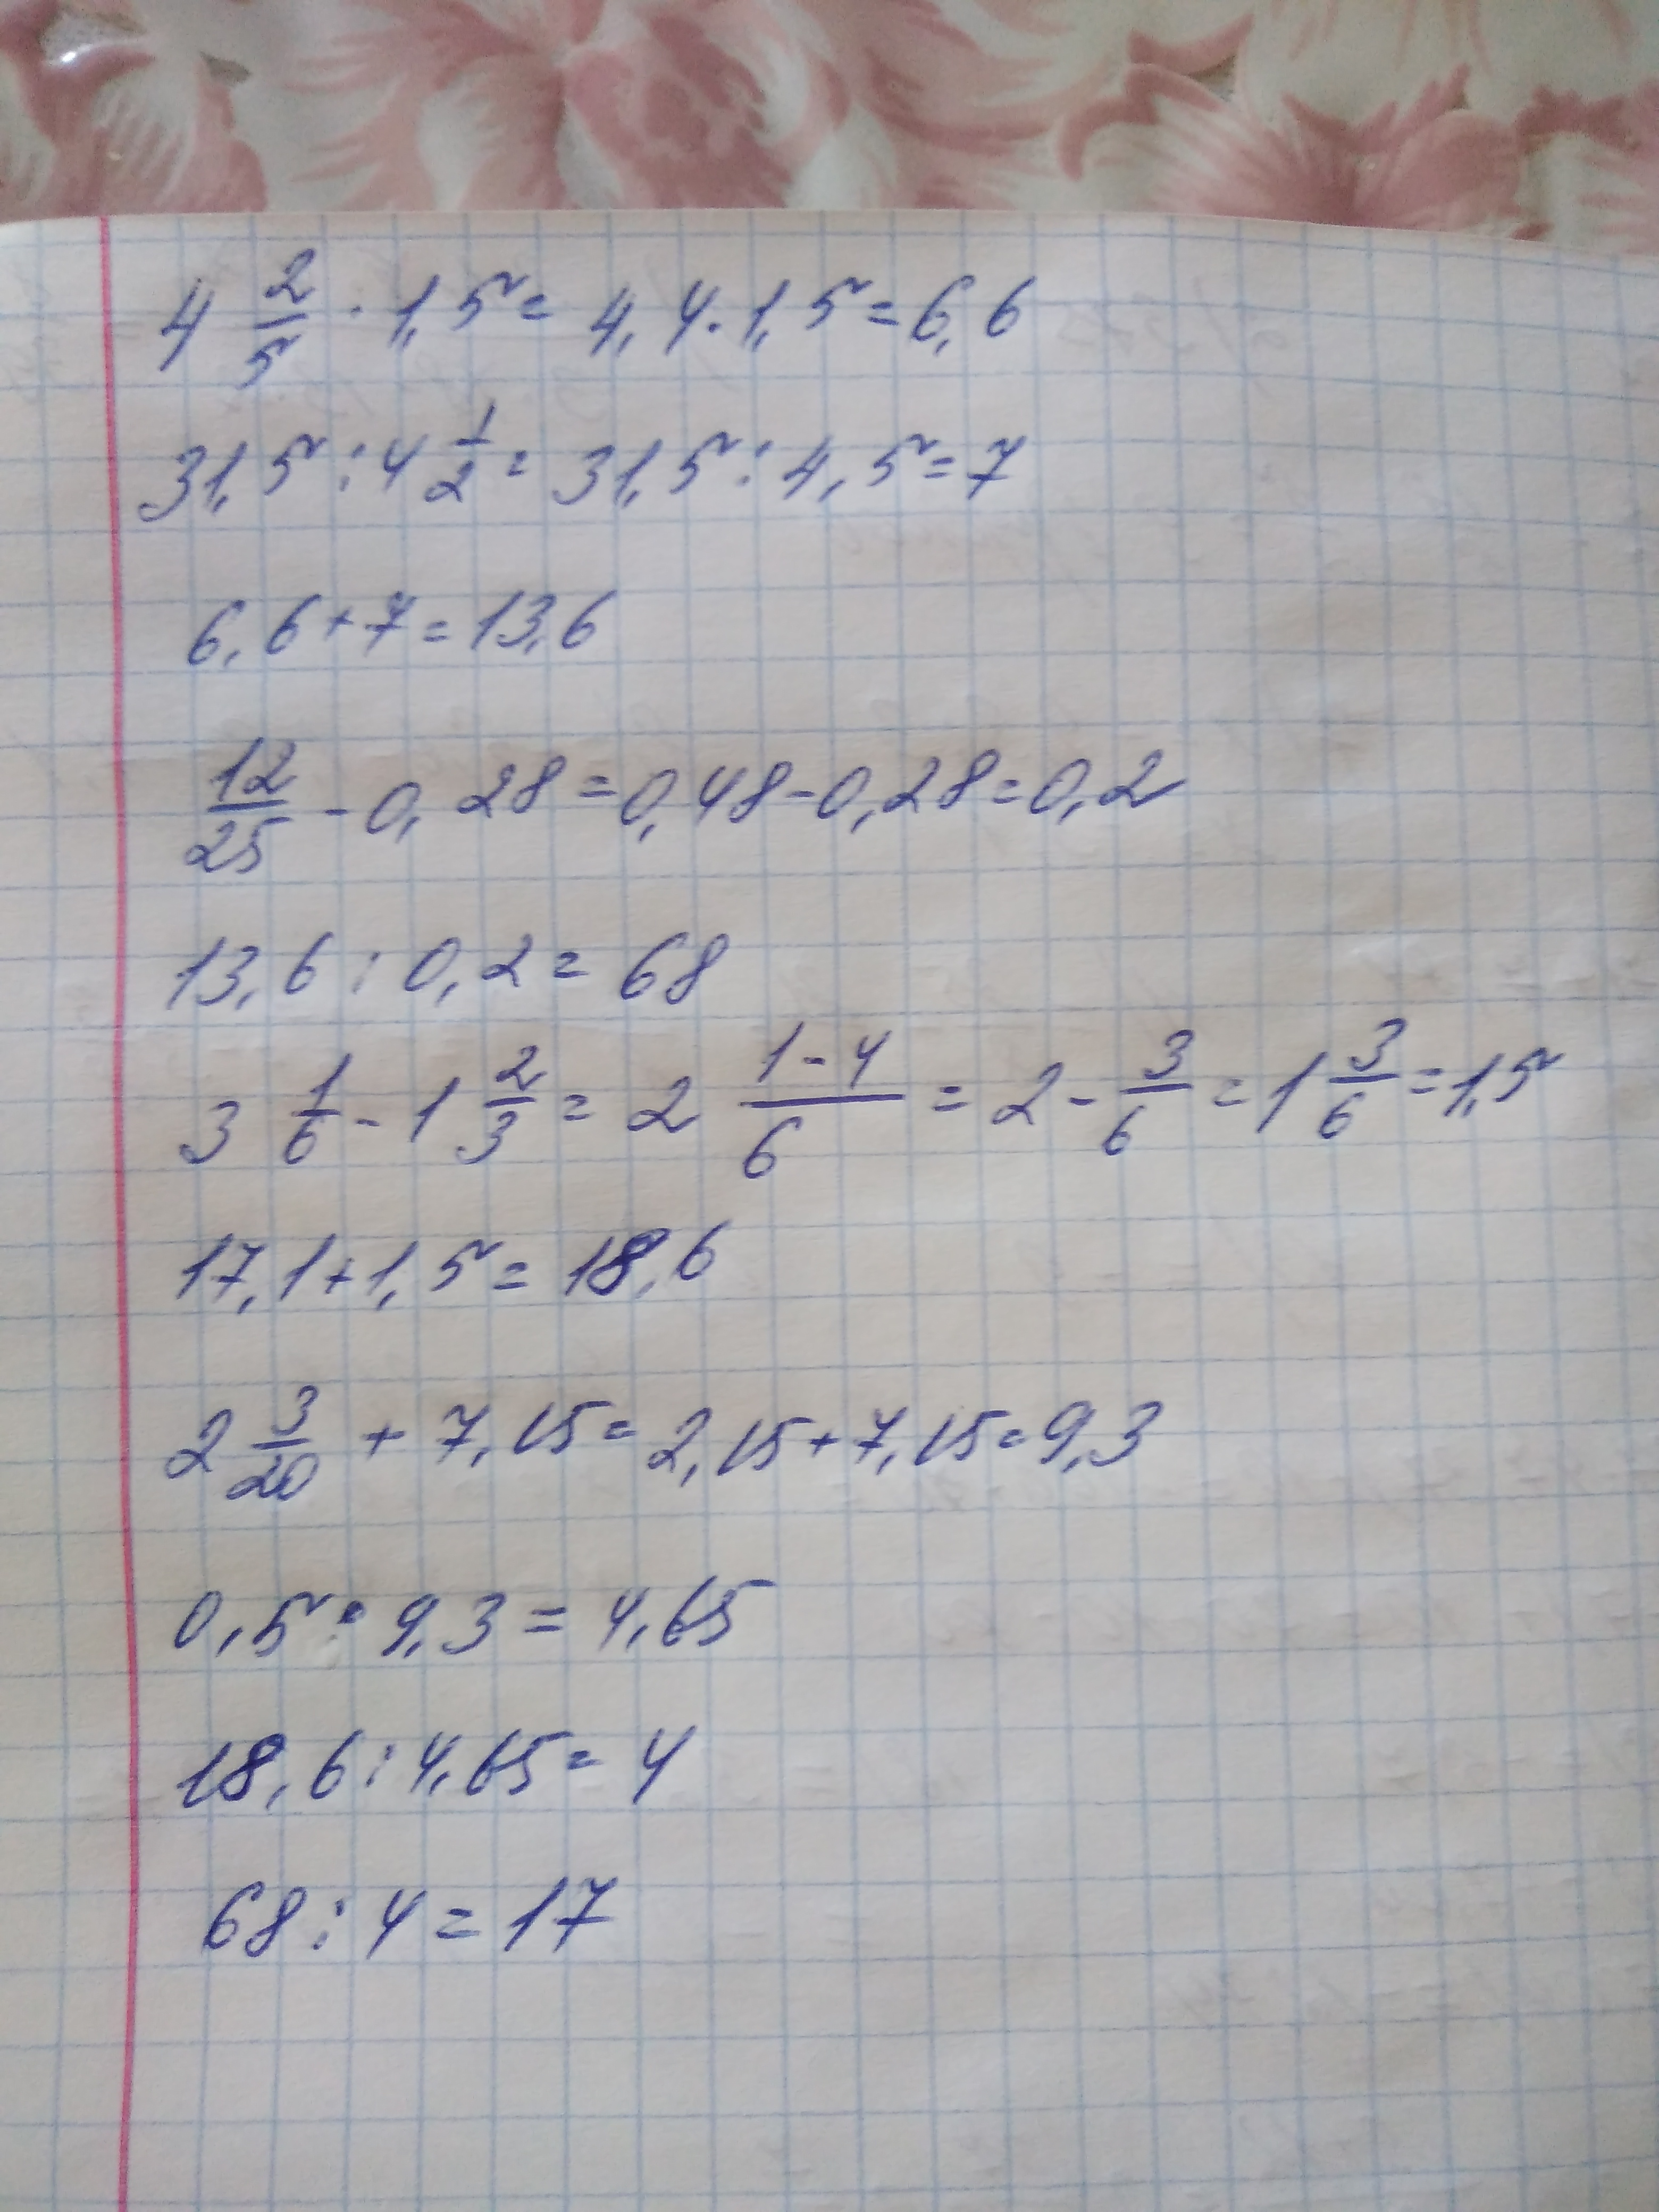 4 2/5 · 1,5 = 4,4 · 1,5 = 6,6
31,5 : 4 1/2 = 31,5 : 4,5 = 7
6,6 + 7 = 13,6
12/25 - 0,28 = 0,48 - 0,28 = 0,2
13,6 : 0,2 = 68
3 1/6 - 1 2/3 = 2 (1-4)/6 = 2 - 3/6 = 1 3/6 = 1,5
17,1 + 1,5 = 18,6
2 3/20 + 7,15 = 2,15 + 7,15 = 9,3
0,5 · 9,3 = 4,65
18,6 : 4,65 = 4
68 : 4 = 17